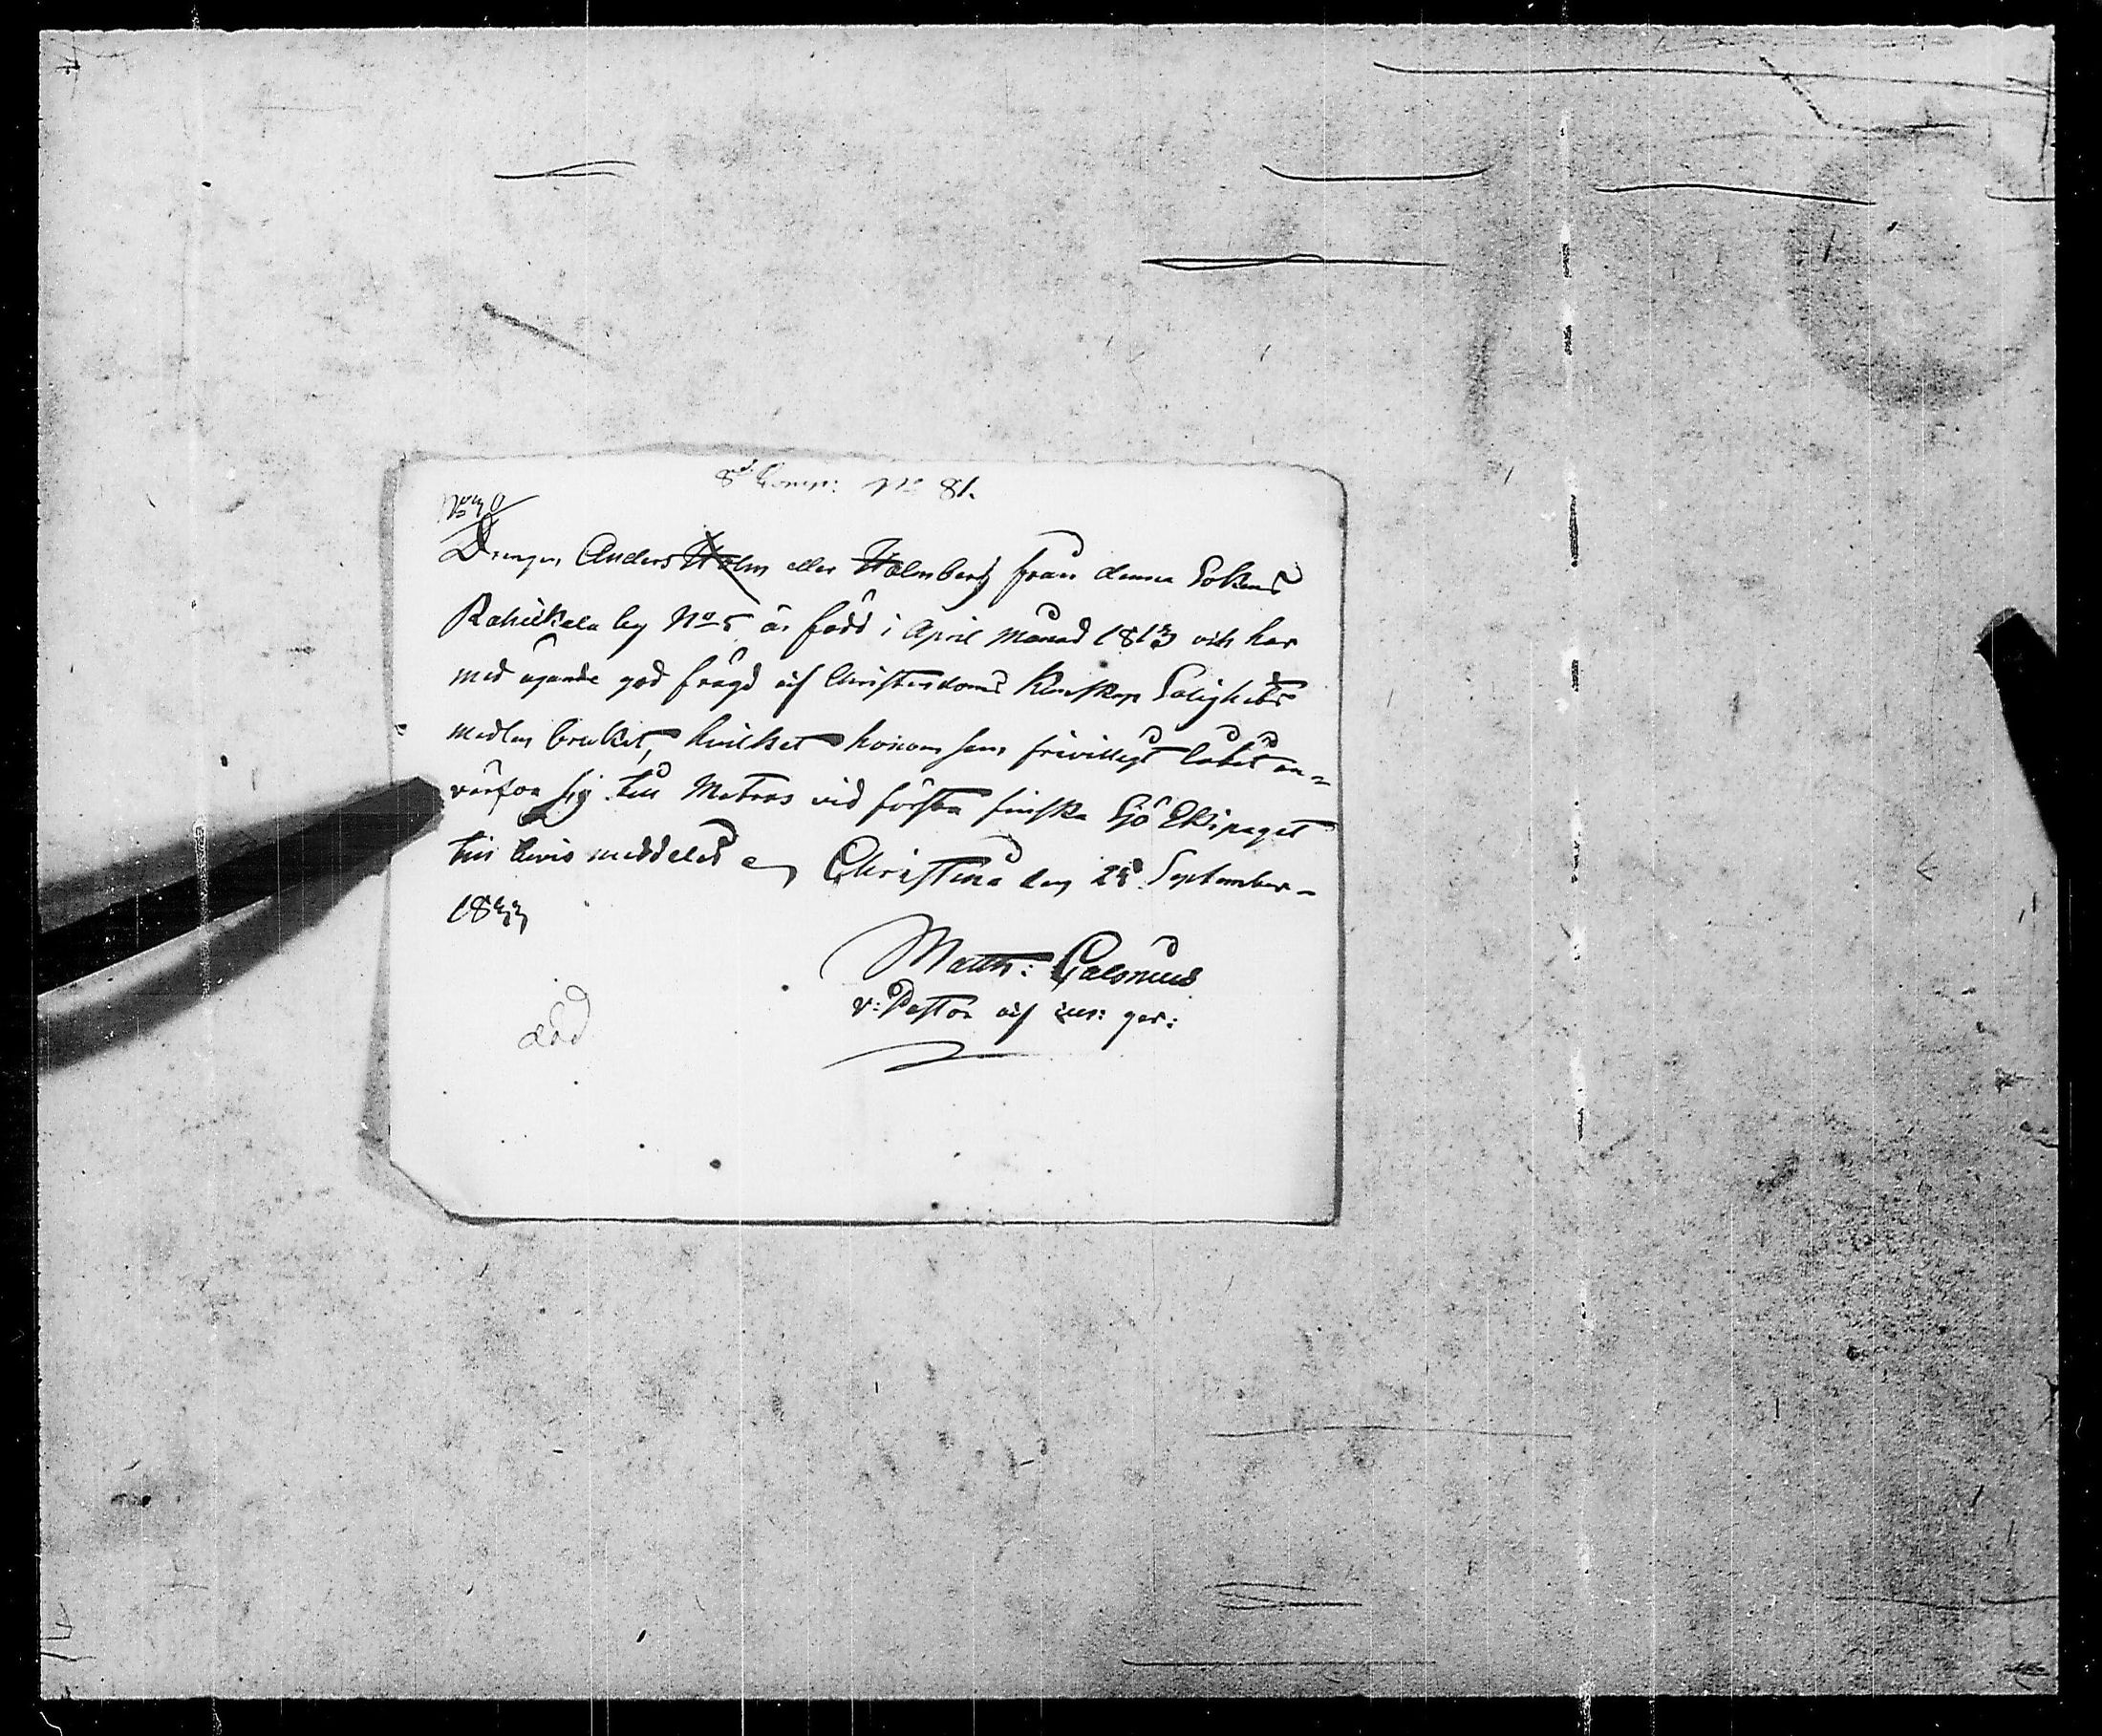 8d Comp: No 81.
Drengen Anders Holm eller Holmberg från denna Sokens
Rahikkala by No 5 är född i April Månad 1813 och har
med ägande god frägd af Christendoms Kunskap Salighets
medlen brukat, hvilket honom som frivilligt låtit an-
värfva sig till Matros vid första finska Sjö Ekipaget
till bevis meddelas Christina den 28 September
1833
Matth: Calonius
v: Pastor
död